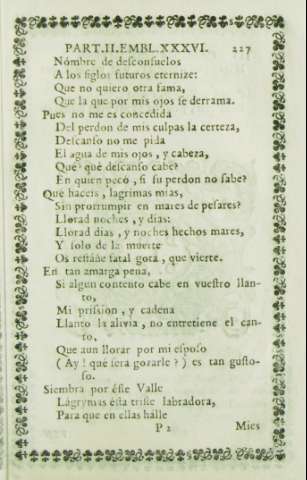 PART.II.EMBL.XXXVI. 227
Nómbre de desconsuelos
A los siglos futuros eternize:
Que no quiero otra fama,
Que la que por mis ojos se derrama.
Pues no me es concedida
Del perdon de mis culpas la certeza,
Descanso no me pida
El agua de mis ojos, y cabeza,
Què què descanso cabe?
En quien pecò, si su perdon no sabe?
Què haceis, lagrimas mias,
Sin prorrumpir en mares de pesares?
Llorad noches, y dias:
Llorad dias, y noches hechos mares,
Y solo de la muerte
Os restañe fatal gota, que vierte.
En tan amarga pena,
Si algun contento cabe en vuestro llan-
to,
Mi prission, y cadena
Llanto la alivia, no entretiene el can-
to,
Que aun llorar por mi esposo
(Ay! què serà gozarle?) es tan gusto-
so.
Siembra por éste Valle
Lágrymas ésta triste labradora,
Para que en ellas halle
P 2 Mies